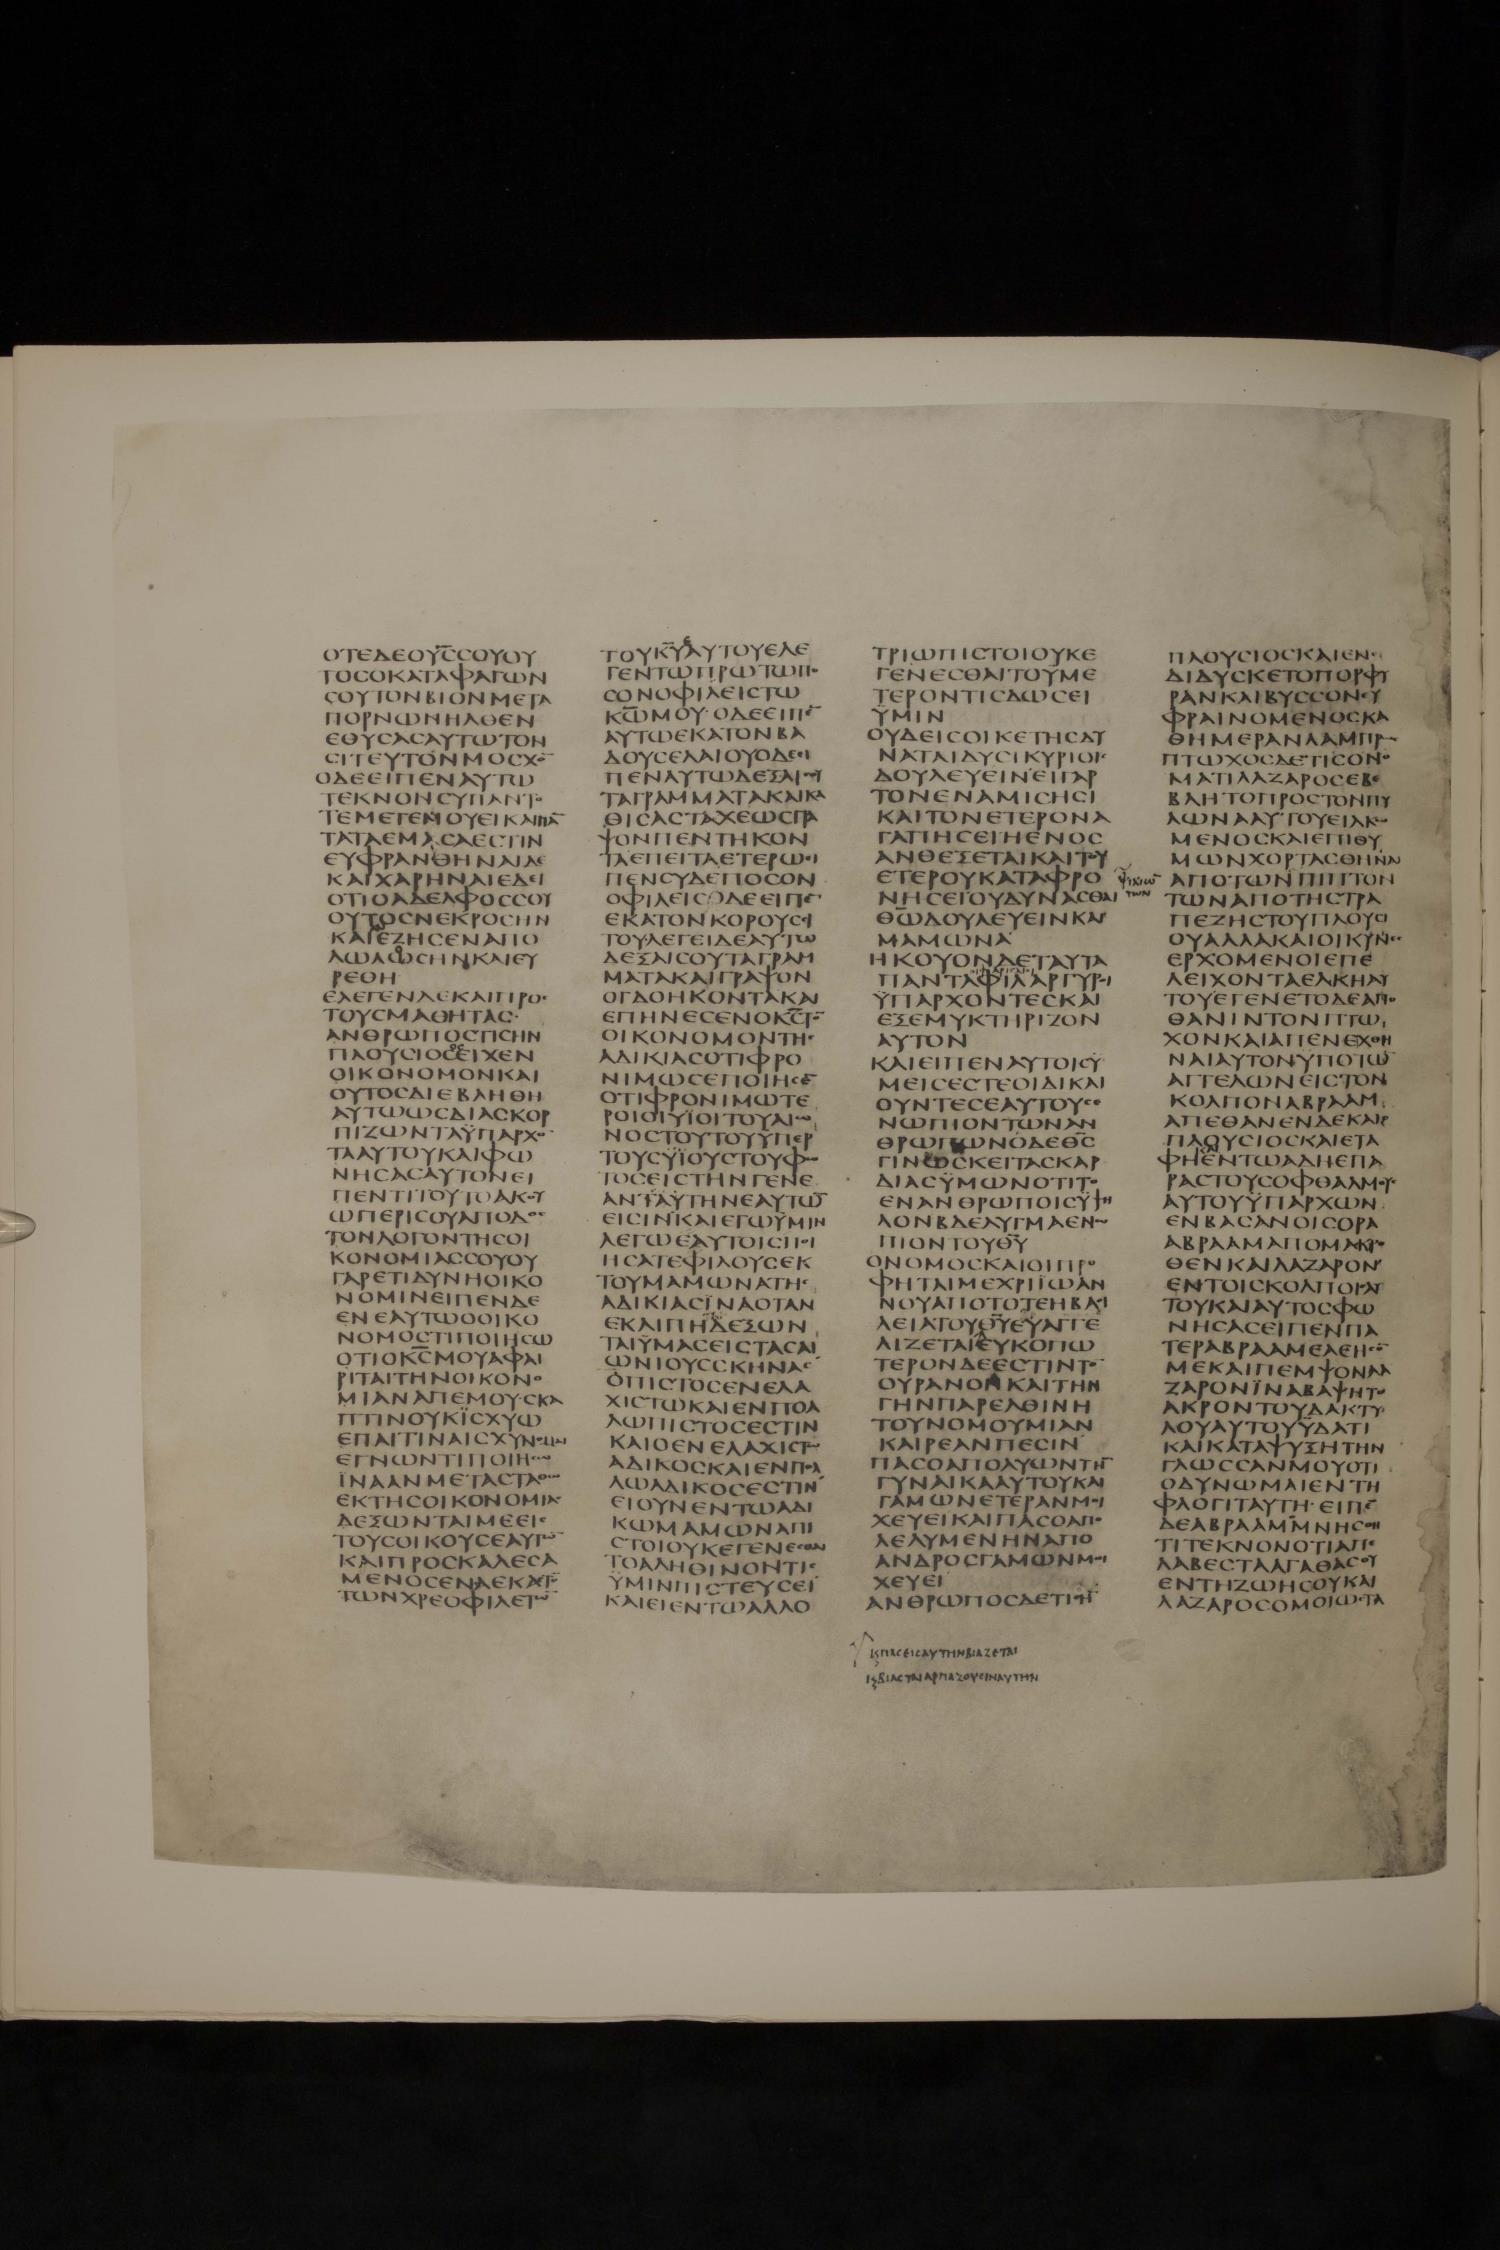 ΟΤΕΔΕΟΥΣ̅ΣΟΥΟΥ
ΤΟΣΟΚΑΤΑΦΑΓΩΝ
ΣΟΥΤΟΝΒΙΟΝΜΕΤΑ
ΠΟΡΝΩΝΗΛΘΕΝ
ΕΘΥΣΑΣΑΥΤΩΤΟΝ
ΣΙΤΕΥΤΟΝΜΟΣΧΟ̅
ΟΔΕΕΙΠΕΝΑΥΤΩ
ΤΕΚΝΟΝΣΥΠΑΝΤΟ
ΤΕΜΕΤΕΜΟΥΕΙΚΑΙΠΑ̅
ΤΑΤΑΕΜΑΣΑΕΣΤΙΝ
ΕΥΦΡΑΝΘΗΝΑΙΔΕ
ΚΑΙΧΑΡΗΝΑΙΕΔΕΙ
ΟΤΙΟΑΔΕΛΦΟΣΣΟΥ
ΟΥΤΟΣΝΕΚΡΟΣΗΝ
ΚΑΙΕΖΗΣΕΝΑΠΟ
ΛΩΛΩΣΗΝΚΑΙΕΥ
ΡΕΘΗ
ΕΛΕΓΕΝΔΕΚΑΙΠΡΟΣ
ΤΟΥΣΜΑΘΗΤΑΣ
ΑΝΘΡΩΠΟΣΤΙΣΗΝ
ΠΛΟΥΣΙΟΣΕΙΧΕΝ
ΟΙΚΟΝΟΜΟΝΚΑΙ
ΟΥΤΟΣΔΙΕΒΛΗΘΗ
ΑΥΤΩΩΣΔΙΑΣΚΟΡ
ΠΙΖΩΝΤΑΫΠΑΡΧΟ̅
ΤΑΑΥΤΟΥΚΑΙΦΩ
ΝΗΣΑΣΑΥΤΟΝΕΙ
ΠΕΝΤΙΤΟΥΤΟΑΚΟΥ
ΩΠΕΡΙΣΟΥΑΠΟΔΟΣ
ΤΟΝΛΟΓΟΝΤΗΣΟΙ
ΚΟΝΟΜΙΑΣΣΟΥΟΥ
ΓΑΡΕΤΙΔΥΝΗΟΙΚΟ
ΝΟΜΙΝΕΙΠΕΝΔΕ
ΕΝΕΑΥΤΩΟΟΙΚΟ
ΝΟΜΟΣΤΙΠΟΙΗΣΩ
ΟΤΙΟΚΣ̅ΜΟΥΑΦΑΙ
ΡΙΤΑΙΤΗΝΟΙΚΟΝΟ
ΜΙΑΝΑΠΕΜΟΥΣΚΑ
ΠΤΙΝΟΥΚΪΣΧΥΩ
ΕΠΑΙΤΙΝΑΙΣΧΥΝΟΜΑΙ
ΕΓΝΩΝΤΙΠΟΙΗΣΩ
ΪΝΑΑΝΜΕΤΑΣΤΑΘΩ
ΕΚΤΗΣΟΙΚΟΝΟΜΙΑΣ
ΔΕΞΩΝΤΑΙΜΕΕΙΣ
ΤΟΥΣΟΙΚΟΥΣΕΑΥΤΩ̅
ΚΑΙΠΡΟΣΚΑΛΕΣΑ
ΜΕΝΟΣΕΝΑΕΚΑΣΤΟ̅
ΤΩΝΧΡΕΟΦΙΛΕΤΩ̅
ΤΟΥΚΥ̅ΑΥΤΟΥΕΛΕ
ΓΕΝΤΩΠΡΩΤΩΠΟ
ΣΟΝΟΦΙΛΕΙΣΤΩ
ΚΩ̅ΜΟΥ·ΟΔΕΕΙΠΕ̅
ΑΥΤΩΕΚΑΤΟΝΒΑ
ΔΟΥΣΕΛΑΙΟΥΟΔΕΕΙ
ΠΕΝΑΥΤΩΔΕΞΑΙΣΟΥ
ΤΑΓΡΑΜΜΑΤΑΚΑΙΚΑ
ΘΙΣΑΣΤΑΧΕΩΣΓΡΑ
ΨΟΝΠΕΝΤΗΚΟΝ
ΤΑΕΠΕΙΤΑΕΤΕΡΩΕΙ
ΠΕΝΣΥΔΕΠΟΣΟΝ
ΟΦΙΛΕΙΣΟΔΕΕΙΠΕ̅
ΕΚΑΤΟΝΚΟΡΟΥΣΣΙ
ΤΟΥ·ΛΕΓΕΙΔΕΑΥΤΩ
ΔΕΞΑΙΣΟΥΤΑΓΡΑΜ
ΜΑΤΑΚΑΙΓΡΑΨΟΝ
ΟΓΔΟΗΚΟΝΤΑΚΑΙ
ΕΠΗΝΕΣΕΝΟΚΣ̅ΤΟ̅
ΟΙΚΟΝΟΜΟΝΤΗΣ
ΑΔΙΚΙΑΣΟΤΙΦΡΟ
ΝΙΜΩΣΕΠΟΙΗΣΕ̅
ΟΤΙΦΡΟΝΙΜΩΤΕ
ΡΟΙΟΙΥΪΟΙΤΟΥΑΙΩ
ΝΟΣΤΟΥΤΟΥΫΠΕΡ
ΤΟΥΣΥΪΟΥΣΤΟΥΦΩ
ΤΟΣΕΙΣΤΗΝΓΕΝΕ
ΑΝΤΑΥΤΗΝΕΑΥΤΩ̅
ΕΙΣΙΝΚΑΙΕΓΩΫΜΙΝ
ΛΕΓΩΕΑΥΤΟΙΣΠΟΙ
ΗΣΑΤΕΦΙΛΟΥΣΕΚ
ΤΟΥΜΑΜΩΝΑΤΗΣ
ΑΔΙΚΙΑΣΪΝΑΟΤΑΝ
ΕΚΛΙΠΗΔΕΞΩΝ
ΤΑΙΫΜΑΣΕΙΣΤΑΣΑΙ
ΩΝΙΟΥΣΣΚΗΝΑΣ
ΟΠΙΣΤΟΣΕΝΕΛΑ
ΧΙΣΤΩΚΑΙΕΝΠΟΛ
ΛΩΠΙΣΤΟΣΕΣΤΙΝ
ΚΑΙΟΕΝΕΛΑΧΙΣΤΩ
ΑΔΙΚΟΣΚΑΙΕΝΠΟΛ
ΛΩΑΔΙΚΟΣΕΣΤΙΝ
ΕΙΟΥΝΕΝΤΩΑΔΙ
ΚΩΜΑΜΩΝΑΠΙ
ΣΤΟΙΟΥΚΕΓΕΝΕΣΘΑΙ
ΤΟΑΛΗΘΙΝΟΝΤΙΣ
ΫΜΙΝΠΙΣΤΕΥΣΕΙ
ΚΑΙΕΙΕΝΤΩΑΛΛΟ
ΤΡΙΩΠΙΣΤΟΙΟΥΚΕ
ΓΕΝΕΣΘΑΙΤΟΥΜΕ
ΤΕΡΟΝΤΙΣΔΩΣΕΙ
ΫΜΙΝ
ΟΥΔΕΙΣΟΙΚΕΤΗΣΔΥ
ΝΑΤΑΙΔΥΣΙΚΥΡΙΟΙΣ
ΔΟΥΛΕΥΕΙΝΕΙΓΑΡ
ΤΟΝΕΝΑΜΙΣΗΣΙ
ΚΑΙΤΟΝΕΤΕΡΟΝΑ
ΓΑΠΗΣΕΙΗΕΝΟΣ
ΑΝΘΕΞΕΤΑΙΚΑΙΤΟΥ
ΕΤΕΡΟΥΚΑΤΑΦΡΟ
ΝΗΣΕΙΟΥΔΥΝΑΣΘΑΙ
ΘΩ̅ΔΟΥΛΕΥΕΙΝΚΑΙ
ΜΑΜΩΝΑ
ΗΚΟΥΟΝΔΕΤΑΥΤΑ
ΠΑΝΤΑΦΙΛΑΡΓΥΡΟΙ
ΫΠΑΡΧΟΝΤΕΣΚΑΙ
ΕΞΕΜΥΚΤΗΡΙΖΟΝ
ΑΥΤΟΝ
ΚΑΙΕΙΠΕΝΑΥΤΟΙΣΫ
ΜΕΙΣΕΣΤΕΟΙΔΙΚΑΙ
ΟΥΝΤΕΣΕΑΥΤΟΥΣΕ
ΝΩΠΙΟΝΤΩΝΑΝ
ΘΡΩΠΩΝΟΔΕΘΣ̅
ΓΙΝΩΣΚΕΙΤΑΣΚΑΡ
ΔΙΑΣΫΜΩΝΟΤΙΤΟ
ΕΝΑΝΘΡΩΠΟΙΣΫΨΗ
ΛΟΝΒΔΕΛΥΓΜΑΕΝΩ
ΠΙΟΝΤΟΥΘΥ̅
ΟΝΟΜΟΣΚΑΙΟΙΠΡΟ
ΦΗΤΑΙΜΕΧΡΙΪΩΑΝ
ΝΟΥΑΠΟΤΟΤΕΗΒΑΣΙ
ΛΕΙΑΤΟΥΘΥ̅ΕΥΑΓΓΕ
ΛΙΖΕΤΑΙΕΥΚΟΠΩ
ΤΕΡΟΝΔΕΕΣΤΙΝΤΟ̅
ΟΥΡΑΝΟΝΚΑΙΤΗΝ
ΓΗΝΠΑΡΕΛΘΙΝΗ
ΤΟΥΝΟΜΟΥΜΙΑΝ
ΚΑΙΡΕΑΝΠΕΣΙΝ
ΠΑΣΟΑΠΟΛΥΩΝΤΗ̅
ΓΥΝΑΙΚΑΑΥΤΟΥΚΑΙ
ΓΑΜΩΝΕΤΕΡΑΝΜΟΙ
ΧΕΥΕΙΚΑΙΠΑΣΟΑΠΟ
ΛΕΛΥΜΕΝΗΝΑΠΟ
ΑΝΔΡΟΣΓΑΜΩΝΜΟΙ
ΧΕΥΕΙ
ΑΝΘΡΩΠΟΣΔΕΤΙΣΗ̅
ΙΣΠΑΣΕΙΣΑΥΤΗΝΒΙΑΖΕΤΑΙ
ΙΣΒΙΑΣΤΑΙΑΡΠΑΖΟΥΣΙΝΑΥΤΗΝ
ΠΛΟΥΣΙΟΣΚΑΙΕΝΕ
ΔΙΔΥΣΚΕΤΟΠΟΡΦΥ
ΡΑΝΚΑΙΒΥΣΣΟΝΕΥ
ΦΡΑΙΝΟΜΕΝΟΣΚΑ
ΘΗΜΕΡΑΝΛΑΜΠΡΩΣ
ΠΤΩΧΟΣΔΕΤΙΣΟΝΟ
ΜΑΤΙΛΑΖΑΡΟΣΕΒΕ
ΒΛΗΤΟΠΡΟΣΤΟΝΠΥ
ΛΩΝΑΑΥΤΟΥΕΙΛΚΩ
ΜΕΝΟΣΚΑΙΕΠΙΘΥ
ΜΩΝΧΟΡΤΑΣΘΗΝΑΙ
ΑΠΟΤΩΝΠΙΠΤΟΝ
ΤΩΝΑΠΟΤΗΣΤΡΑ
ΠΕΖΗΣΤΟΥΠΛΟΥΣΙ
ΟΥΑΛΛΑΚΑΙΟΙΚΥΝΕΣ
ΕΡΧΟΜΕΝΟΙΕΠΕ
ΛΕΙΧΟΝΤΑΕΛΚΗΑΥ
ΤΟΥΕΓΕΝΕΤΟΔΕΑΠΟ
ΘΑΝΙΝΤΟΝΠΤΩ
ΧΟΝΚΑΙΑΠΕΝΕΧΘΗ
ΝΑΙΑΥΤΟΝΫΠΟΤΩ̅
ΑΓΓΕΛΩΝΕΙΣΤΟΝ
ΚΟΛΠΟΝΑΒΡΑΑΜ
ΑΠΕΘΑΝΕΝΔΕΚΑΙΟ
ΠΛΟΥΣΙΟΣΚΑΙΕΤΑ
ΦΗΕΝΤΩΑΔΗΕΠΑ
ΡΑΣΤΟΥΣΟΦΘΑΛΜΟΥΣ
ΑΥΤΟΥΫΠΑΡΧΩΝ
ΕΝΒΑΣΑΝΟΙΣΟΡΑ
ΑΒΡΑΑΜΑΠΟΜΑΚΡΟ
ΘΕΝΚΑΙΛΑΖΑΡΟΝ
ΕΝΤΟΙΣΚΟΛΠΟΙΣΑΥ
ΤΟΥΚΑΙΑΥΤΟΣΦΩ
ΝΗΣΑΣΕΙΠΕΝΠΑ
ΤΕΡΑΒΡΑΑΜΕΛΕΗΣΟ̅
ΜΕΚΑΙΠΕΜΨΟΝΛΑ
ΖΑΡΟΝΪΝΑΒΑΨΗΤΟ
ΑΚΡΟΝΤΟΥΔΑΚΤΥ
ΛΟΥΑΥΤΟΥΫΔΑΤΙ
ΚΑΙΚΑΤΑΨΥΞΗΤΗΝ
ΓΛΩΣΣΑΝΜΟΥΟΤΙ
ΟΔΥΝΩΜΑΙΕΝΤΗ
ΦΛΟΓΙΤΑΥΤΗ·ΕΙΠΕ̅
ΔΕΑΒΡΑΑΜΜΝΗΣΘΗ
ΤΙΤΕΚΝΟΝΟΤΙΑΠΕ
ΛΑΒΕΣΤΑΑΓΑΘΑΣΟΥ
ΕΝΤΗΖΩΗΣΟΥΚΑΙ
ΛΑΖΑΡΟΣΟΜΟΙΩΣΤΑ